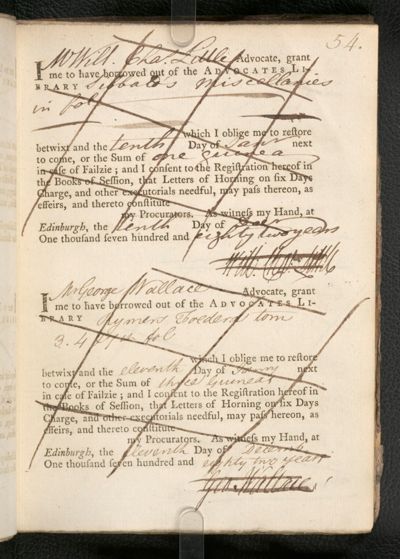 54.
I Mr Will. Chas. Little Advocate, grant
me to have borrowed out of the ADVOCATES LI-
BRARY Sibbald's miscellanies
in fol
which I oblige me to reſtore
betwixt and the tenth Day of Janry next
to come, or the Sum of one guinea
in caſe of Failzie; and I conſent to the Regiſtration hereof in
the Books of Seſſion, that Letters of Horning on ſix Days
Charge, and other executorials needful, may paſs thereon, as
effeirs, and thereto conſtitute
my Procurators. As witneſs my Hand, at
Edinburgh, the tenth Day of
One thouſand ſeven hundred and eighty two years
Will. Chas. Little
I Mr George Wallace Advocate, grant
me to have borrowed out of the ADVOCATES LI-
BRARY Rymers Foedera tom
3. 4 fol
which I oblige me to reſtore
betwixt and the eleventh Day of Janry next
to come, or the Sum of three Guineas
in caſe of Failzie; and I conſent to the Regiſtration hereof in
the Books of Seſſion, that Letters of Horning on ſix Days
Charge, and other executorials needful, may paſs hereon, as
effeirs, and thereto conſtitute
my Procurators. As witneſs my Hand, at
Edinburgh, the eleventh Day of Decemr
One thouſand ſeven hundred and eighty two years
Geo. Wallace